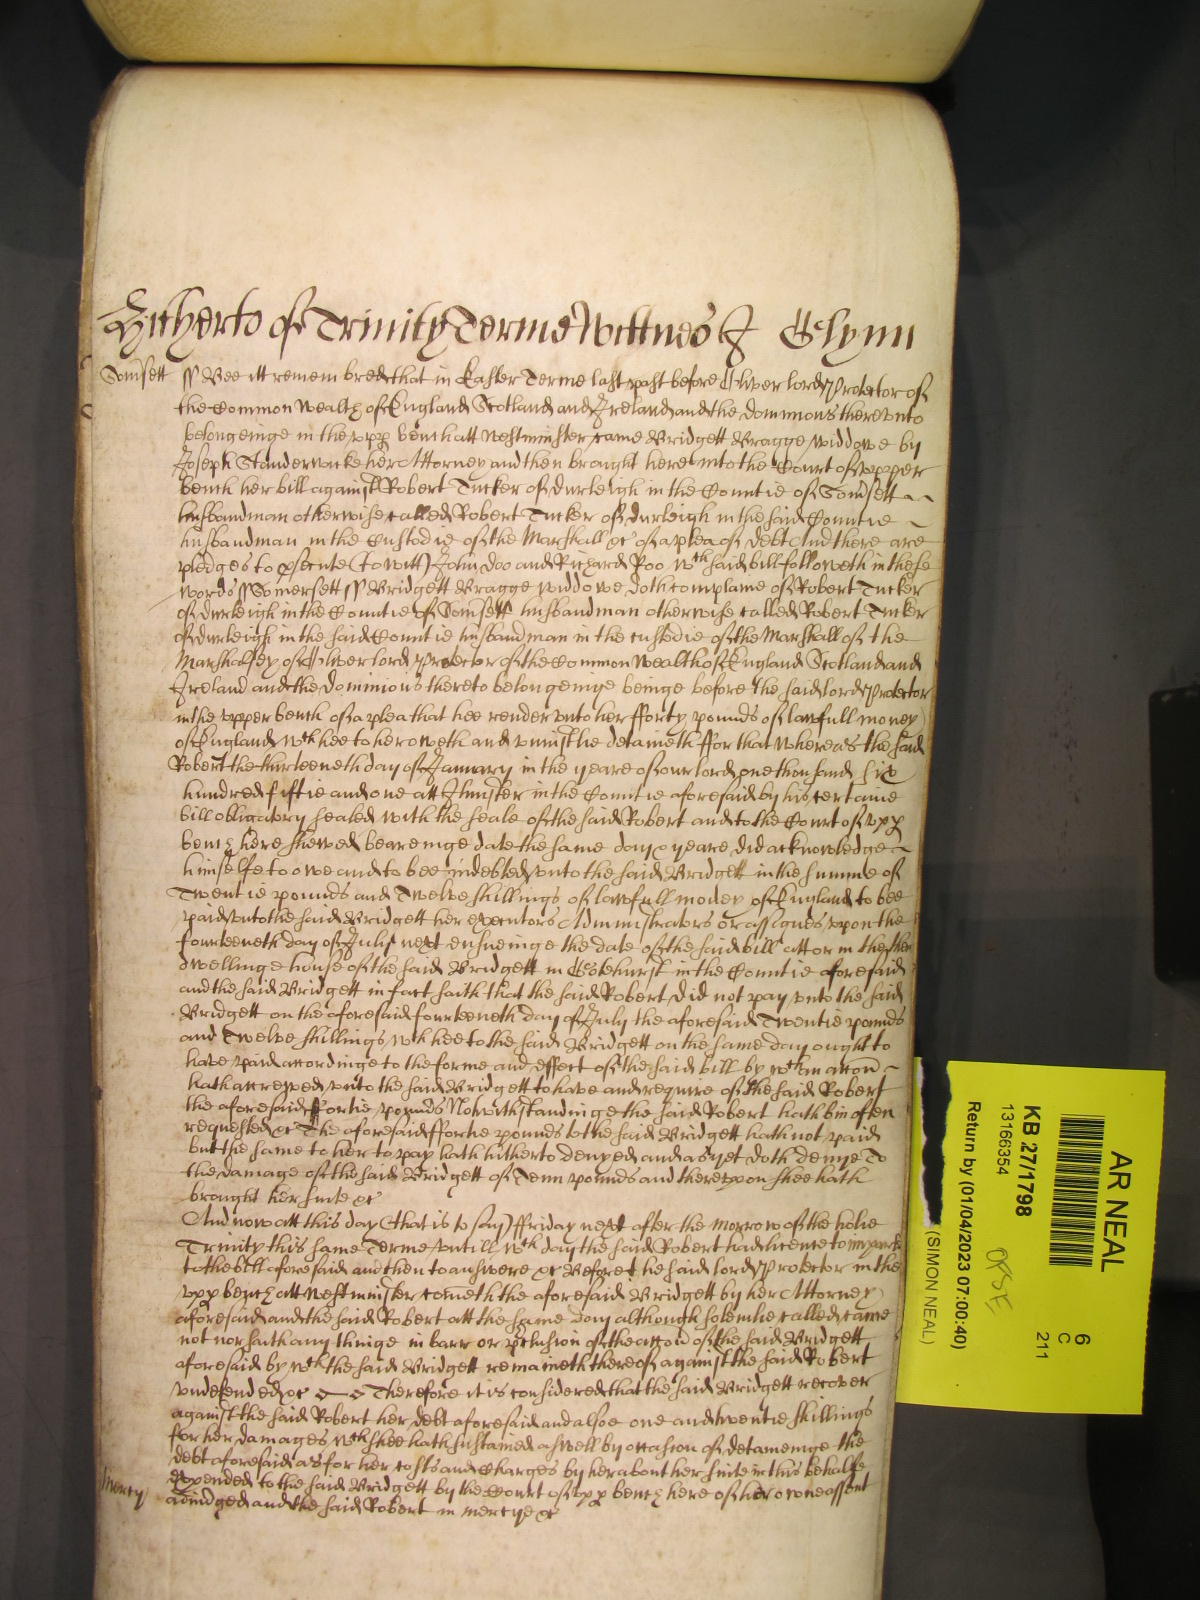 Hitherto of Trinity Terme Wittnes J Glynn
Somsett ss Bee itt remembred that in Easter Terme last past before Oliver lord Protector of
the Common Wealth of England Scotland and Ireland and the dominions there vnto
belongeinge in the vpp bench att Westminster came Bridgett Bragge widdowe by
Joseph Standerwicke her Attorney and then brought here into the Court of vpper
bench her bill against Robert Tucker of durleigh in the Countie of Somsett
husbandman otherwise called Robert Tucker of durleigh in the said Countie
husbandman in the Custodie of the Marshall &c of a plea of debt And there are
pledges to psecute (to witt) John Doo and Richard Roo wch said bill followeth in these
words ss Somersett ss Bridgett Bragge widdowe doth complaine of Robert Tucker
of durleigh in the Countie of Somsett husbandman otherwise called Robert Tucker
of durleigh in the said Countie husbandman in the custodie of the Marshall of the
Marshalsey of Oliver lord Protector of the Common Wealth of England Scotland and
Ireland and the dominions thereto belongeinge beinge before the said lord Protector
in the vpper bench of a plea that hee render vnto her fforty pounds of lawfull money
of England wch hee to her oweth and vniustlie detaineth ffor that whereas the said
Robert the thirteeneth day of January in the yeare of our lord one thousand six
hundred fiftie and one att Ilmister in the Countie aforesaid by his certaine
bill obligatory sealed with the seale of the said Robert and to the Court of vpp
bench here shewed beareinge date the same day & yeare did acknowledge
himselfe to owe and to bee indebted vnto the said Bridgett in the summe of
Twentie pounds and Twelve shillings of lawfull money of England to bee
paid vnto the said Bridgett her executors Administrators or assignes vpon the
fourteeneth day of July next ensueinge the date of the said bill att or in the then
dwellinge house of the said Bridgett in in the Countie aforesaid
and the said Bridgett in fact saith that the said Robert did not pay vnto the said
Bridgett on the aforesaid fourteeneth day of July the aforesaid Twentie pounds
and Twelve shillings wch hee to the said Bridgett on the same day ought to
have paid accordinge to the forme and effect of the said bill by wch an accon
hath accrewed vnto the said Bridgett to have and require of the said Robert
the aforesaid ffortie pounds Notwithstandinge the said Robert hath bin often
requested &c The aforesaid ffortie pounds to the said Bridgett hath not paid
but the same to her to pay hath hitherto denyed and as yet doth denye To
the damage of the said Bridgett of Tenn pounds and therevpon shee hath
brought her suite &c
And now att this day (that is to say) ffriday next after the morrow of the holie
Trinity this same Terme vntill wch day the said Robert had licence to imparle
to the bill aforesaid and then to answere &c Before the said lord Protector in the
vpp bench att Westminster cometh the aforesaid Bridgett by her Attorney
aforesaid and the said Robert att the same day although solemlie called came
not nor saith any thinge in barr or pclusion of the accon of the said Bridgett
aforesaid by wch the said Bridgett remaineth thereof against the said Robert
vndefended &c Therefore it is considered that the said Bridgett recover
against the said Robert her debt aforesaid and alsoe one and twentie shillings
for her damages wch shee hath sustained aswell by occasion of detaineinge the
debt aforesaid as for her costs and charges by her about her suite in this behalfe
expended to the said Bridgett by the Court of vpp bench here of her owne assent
Mercy adiudged and the said Robert in mercye &c
AR NEAL
KB 27/1798
13166354
Return by (01/04/2023 07:00:40)
(SIMON NEAL)
6
C
211